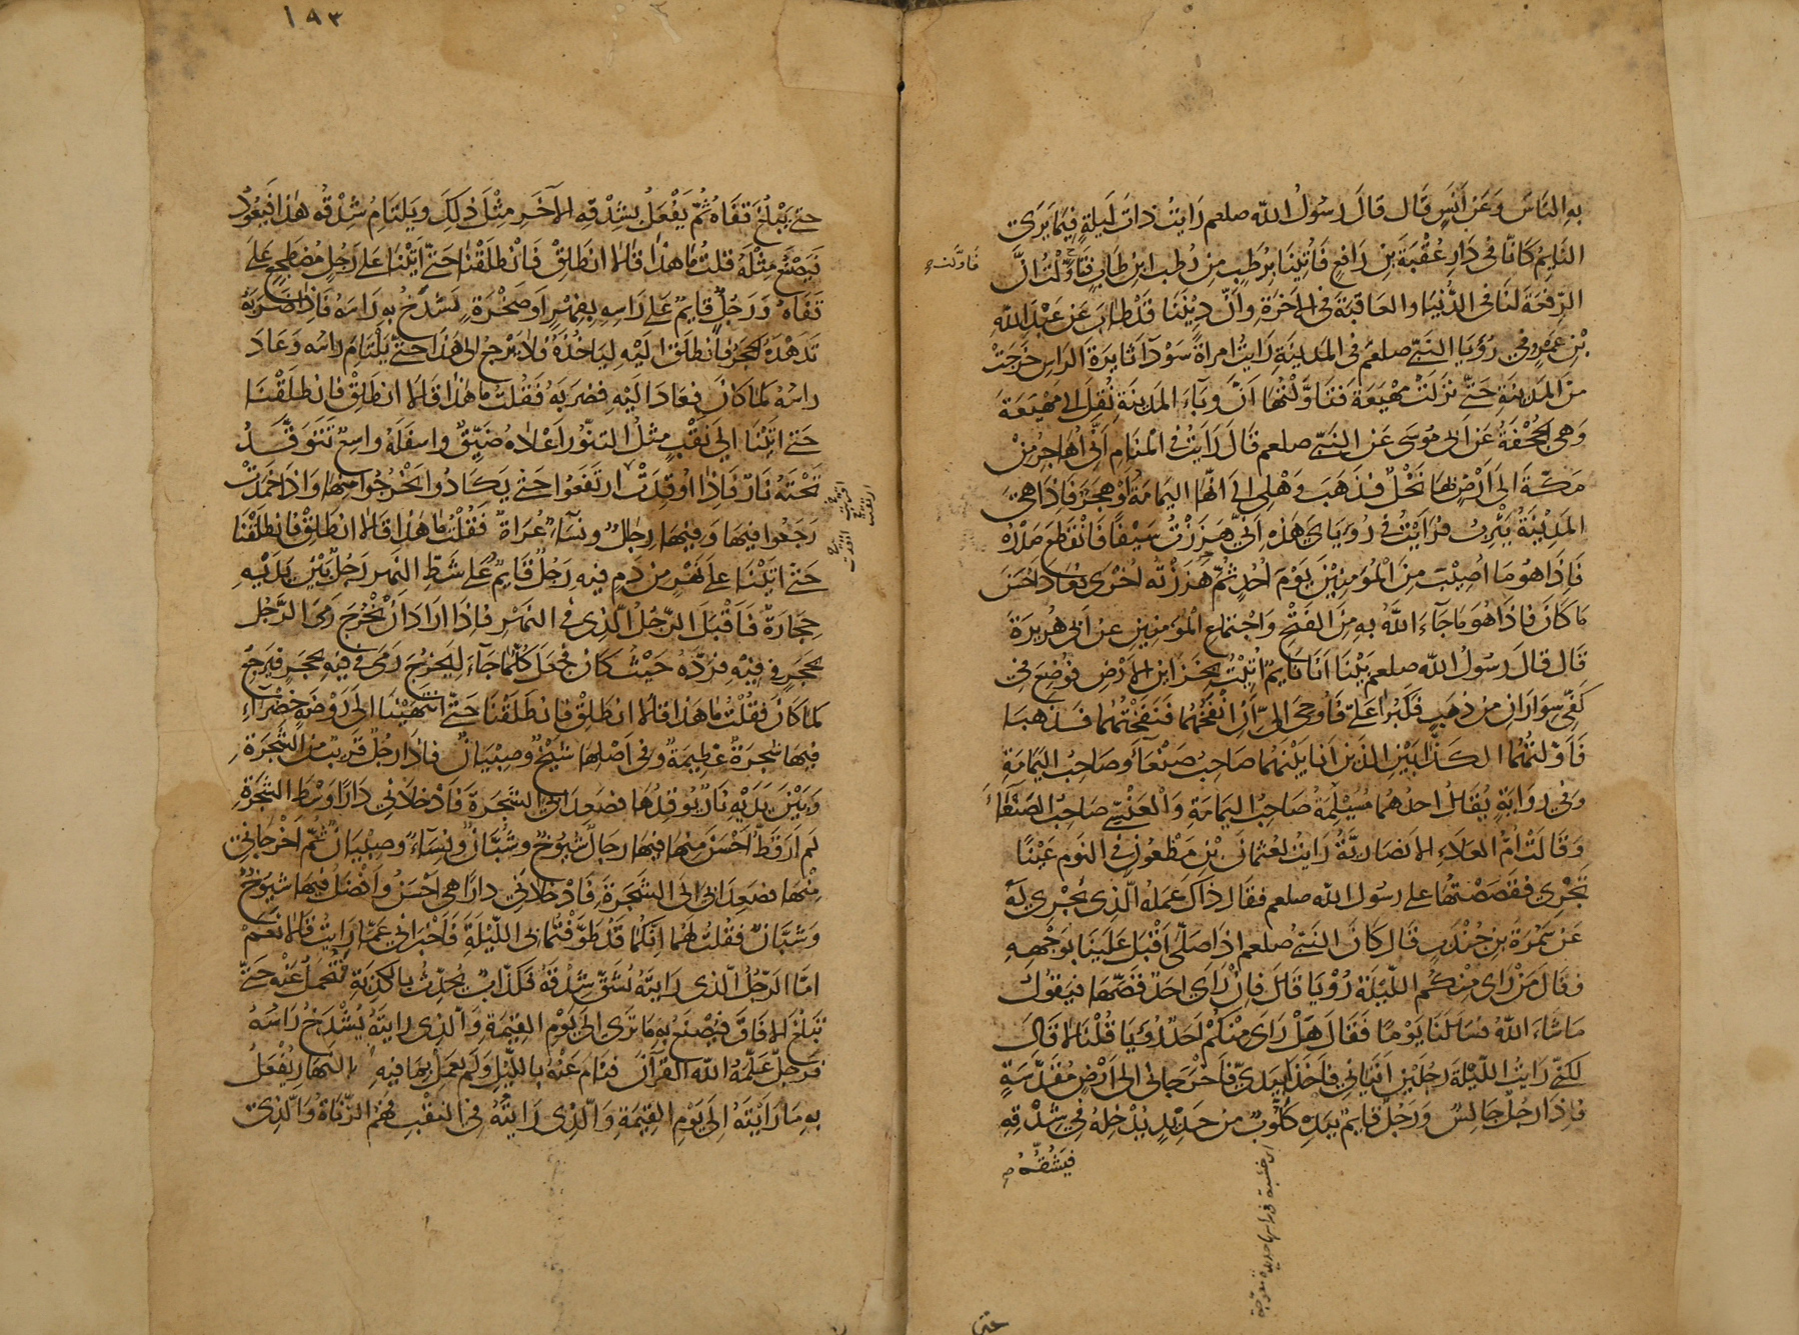 به الناس وعن انس قال قال رسول الله صلعم رايت ذات ليلة فيما يرى
النايم كانا في دار عقبة بن رافع فاتينا برطب من رطب ابن طاب فتاولت ان
فاولت نسخ
الرفعة لنا في الدنيا والعاقبة في الاخرة وان ديننا قد طاب عن عبد الله
بن عمرو في رؤيا النبي صلعم في المدينة رايت امراة سوداء ثايرة الراس خرجت
من المدينة حتى نزلت مهيعة فتاولتها ان وباء المدينة نقل الى مهيعة
وهي الجحفة عن ابي موسى عن النبي صلعم قال رايت في المنام اني اهاجر من
مكة الى ارض بها نخل فذهب وهلي الى انها اليمامة او هجر فاذا هي
المدينة يثرب ورايت في روياي هذه اني هززت سيفا فانقطع صدره
فاذا هو ما اصيب من المؤمنين يوم احد ثم هززته اخرى فعاد احسن
ما كان فاذا هو ما جاء الله به من الفتح واجتماع المؤمنين عن ابي هريرة
قال قال رسول الله صلعم بينا انا نايم اتيت بخزاين الارض فوضع في
كفي سواران من ذهب فكبرا علي فاوحي الي ان انفخهما فنفختهما فذهبا
فاولتهما الكذابين الذين انا بينهما صاحب صنعاء وصاحب اليمامة
وفي رواية يقال احدهما مسيلمة صاحب اليمامة والعنسي صاحب الصنعاء
وقالت ام العلاء الانصارية رايت لعثمان بن مظعون في النوم عينا
تجري فقصصتها على رسول الله صلعم فقال ذاك عمله الذي يجري له
عن سمرة بن جندب قال كان النبي صلعم اذا صلى اقبل علينا بوجهه
فقال من راى منكم الليلة رؤيا قال فان راى احد قصها فيقول
ما شاء الله فسالنا يوما فقال هل راى منكم احد رؤيا قلنا لا قال
لكني رايت الليلة رجلين اتياني فاخذا بيدي فاخرجاني الى ارض مقدسة
فاذا رجل جالس ورجل قايم بيده كلوب من حديد يدخله في شدقه
فيشقه
اي خشبة في راسها حديدة معوجة
١٩٣
حتى يبلغ قفاه ثم يفعل بشدقه الآخر مثل ذلك ويلتام شدقه هذا فيعود
فيصنع مثله قلت ما هذا قالا انطلق فانطلقنا حتى اتينا على رجل مضطجع على
قفاه ورجل قايم على راسه بفهر او صخرة يشدخ به راسه فاذا ضربه
تدهده الحجر فانطلق اليه لياخذه فلا يرجع الى هذا حتى يلتام راسه وعاد
راسه كما كان فعاد اليه فضربه فقلت ما هذا قالا انطلق فانطلقنا
حتى اتينا الى نقب مثل التنور اعلاه ضيق واسفله واسع تتوقد
تحته نار فاذا اوقدت ارتفعوا حتى يكادوا يخرجوا منها واذا خمدت
رجعوا فيها وفيها رجال ونساء عراة فقلت ما هذا قالا انطلق فانطلقنا
حتى اتينا على نهر من دم فيه رجل قايم على شط النهر رجل بين يديه
حجارة فاقبل الرجل الذي في النهر فاذا اراد ان يخرج رمى الرجل
بحجر في فيه فرده حيث كان فجعل كلما جاء ليخرج رمى في فيه بحجر فيرجع
كما كان فقلت ما هذا قالا انطلق فانطلقنا حتى انتهينا الى روضة خضراء
فيها شجرة عظيمة وفي اصلها شيخ وصبيان فاذا رجل قريب من الشجرة
وبين يديه نار يوقدها فصعدا بي الشجرة فادخلاني دارا وسط الشجرة
لم ار قط احسن منها فيها رجال شيوخ وشبان ونساء وصبيان ثم اخرجاني
منها فصعدا بي الى الشجرة فادخلاني دارا هي احسن وافضل فيها شيوخ
وشبان فقلت لهما انكما قد طوفتماني الليلة فاخبراني عما رايت قالا نعم
اما الرجل الذي رايته يشق شدقه فكذاب يحدث بالكذبة فتحمل عنه حتى
تبلغ الافاق فيصنع به ما ترى الى يوم القيمة والذي رايته يشدخ راسه
فرجل علمه الله القرآن فنام عنه بالليل ولم يعمل بما فيه بالنهار يفعل
به ما رايته الى يوم القيمة والذي رايته في النقب فهم الزناة والذي